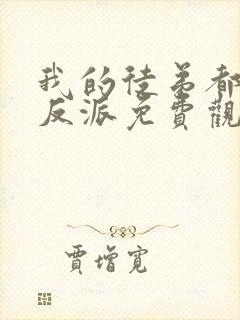 我的徒弟都
反派免費觀
賈增寬